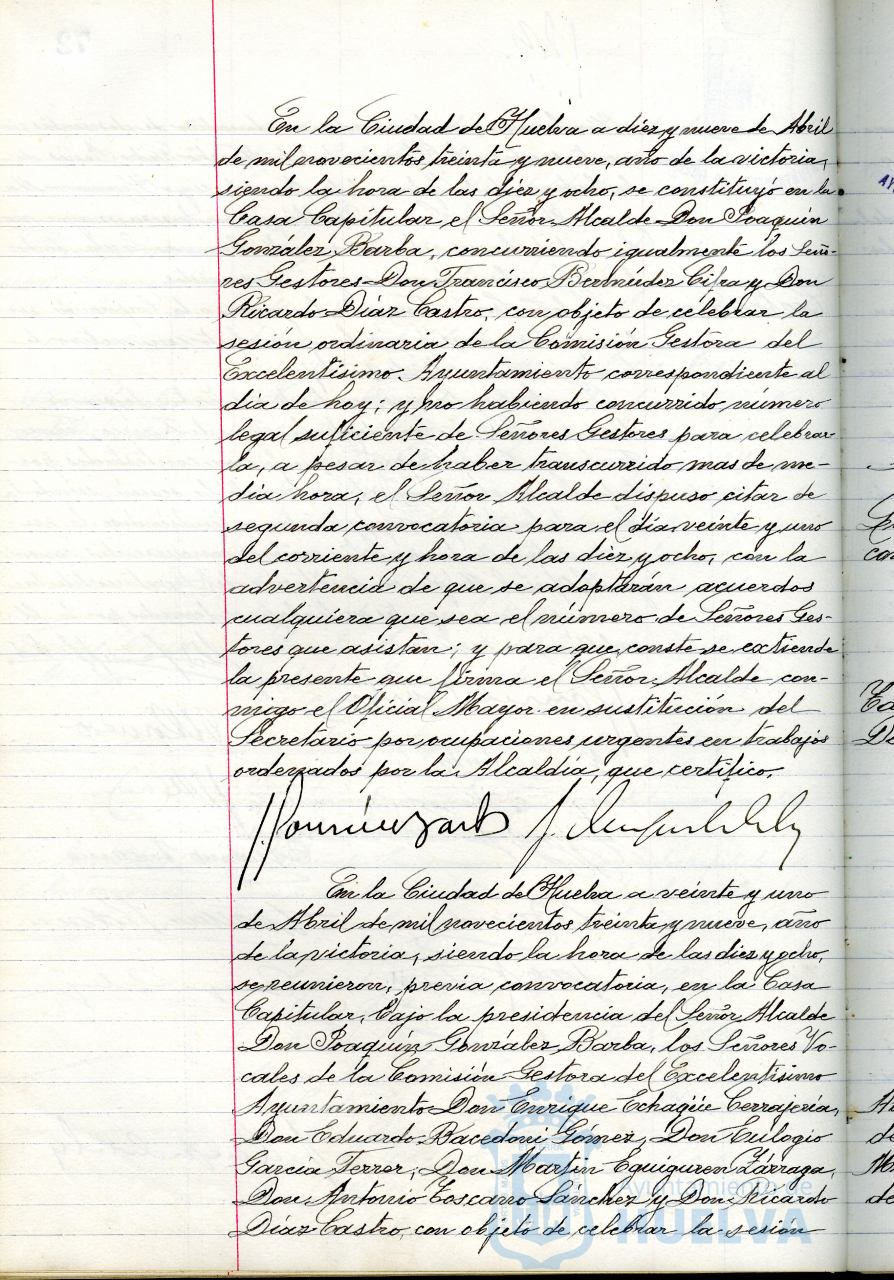 En la Ciudad de Huelva a diez y nueve de Abril
de mil novecientos treinta y nueve, año de la victoria,
siendo la hora de las diez y ocho, se constituyó en la
Casa Capitular el Señor Alcalde Don Joaquín
González Barba, concurriendo igualmente los Seño-
res Gestores Don Francisco Bermúdez Cifra y Don
Ricardo Díaz Castro, con objeto de celebrar la
sesión ordinaria de la Comisión Gestora del
Excelentísimo Ayuntamiento correspondiente al
día de hoy; y no habiendo concurrido número
legal suficiente de Señores Gestores para celebrar-
la, a pesar de haber transcurrido mas de me-
dia hora, el Señor Alcalde dispuso citar de
segunda convocatoria para el día veinte y uno
del corriente y hora de las diez y ocho, con la
advertencia de que se adoptarán acuerdos
cualquiera que sea el número de Señores Ges-
tores que asistan; y para que conste se extiende
la presente que firma el Señor Alcalde con-
migo el Oficial Mayor en sustitución del
Secretario por ocupaciones urgentes en trabajos
ordenados por la Alcaldía, que certifico.
En la Ciudad de Huelva a veinte y uno
de Abril de mil novecientos treinta y nueve, año
de la victoria, siendo la hora de las diez y ocho,
se reunieron, previa convocatoria, en la Casa
Capitular, bajo la presidencia del Señor Alcalde
Don Joaquín González Barba, los Señores Vo-
cales de la Comisión Gestora del Excelentísimo
Ayuntamiento Don Enrique Echagüe Cerrajería,
Don Eduardo Bacedoni Gómez, Don Eulogio
García Ferrer, Don Martín Equiguren Zárraga,
Don Antonio Toscano Sánchez y Don Ricardo
Díaz Castro, con objeto de celebrar la sesión
Ayuntamiento de
HUELVA